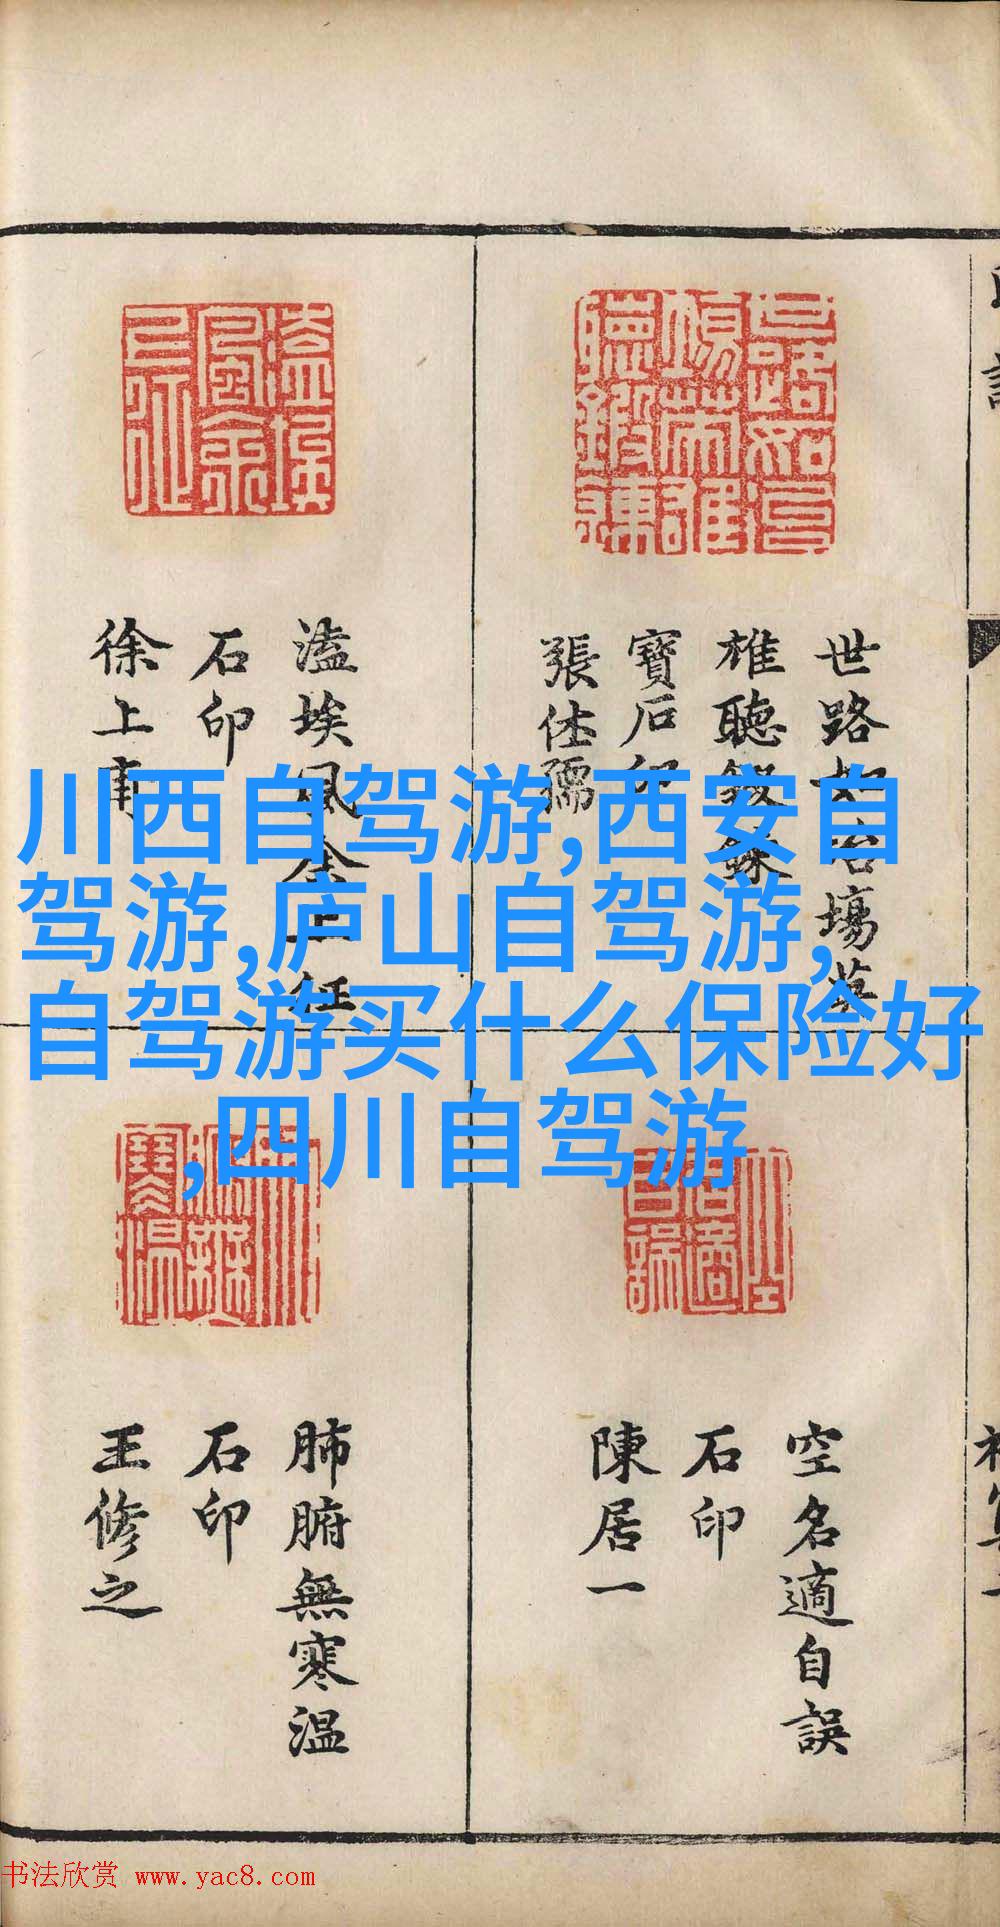 川西自驾游,西安自
驾游,庐山自驾游,
自驾游买什么保险好
,四川自驾游
世路如冶塲英
雄聽鍛鍊
寶石印
張孺
溘埃風余上征
石印
徐上甫
空名適自誤
石印
陳居一
肺腑無寒溫
石印
王修之
书法欣赏 www.yac8.com